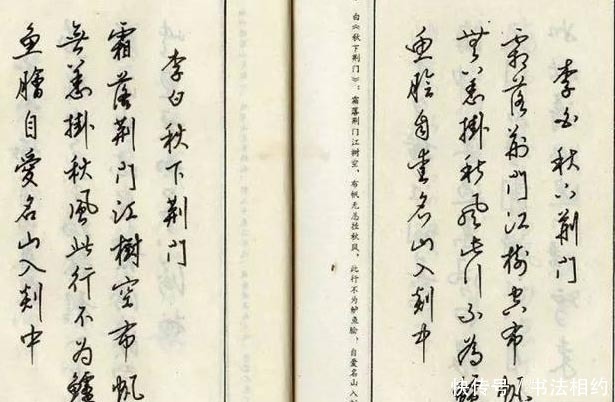 李白秋下荆门
霜落荆门江樹空布帆
無恙掛秋風此行不为鱸
魚膾自愛名山入剡中
白《秋下荆门》：霜落荆门江树空，布帆无恙挂秋风。此行不为鲈鱼脍，自爱名山入
李白秋下荆门
霜落荆门江樹空布帆
無恙掛秋風此行不為鱸
魚膾自愛名山入剡中
快传号/书法相约